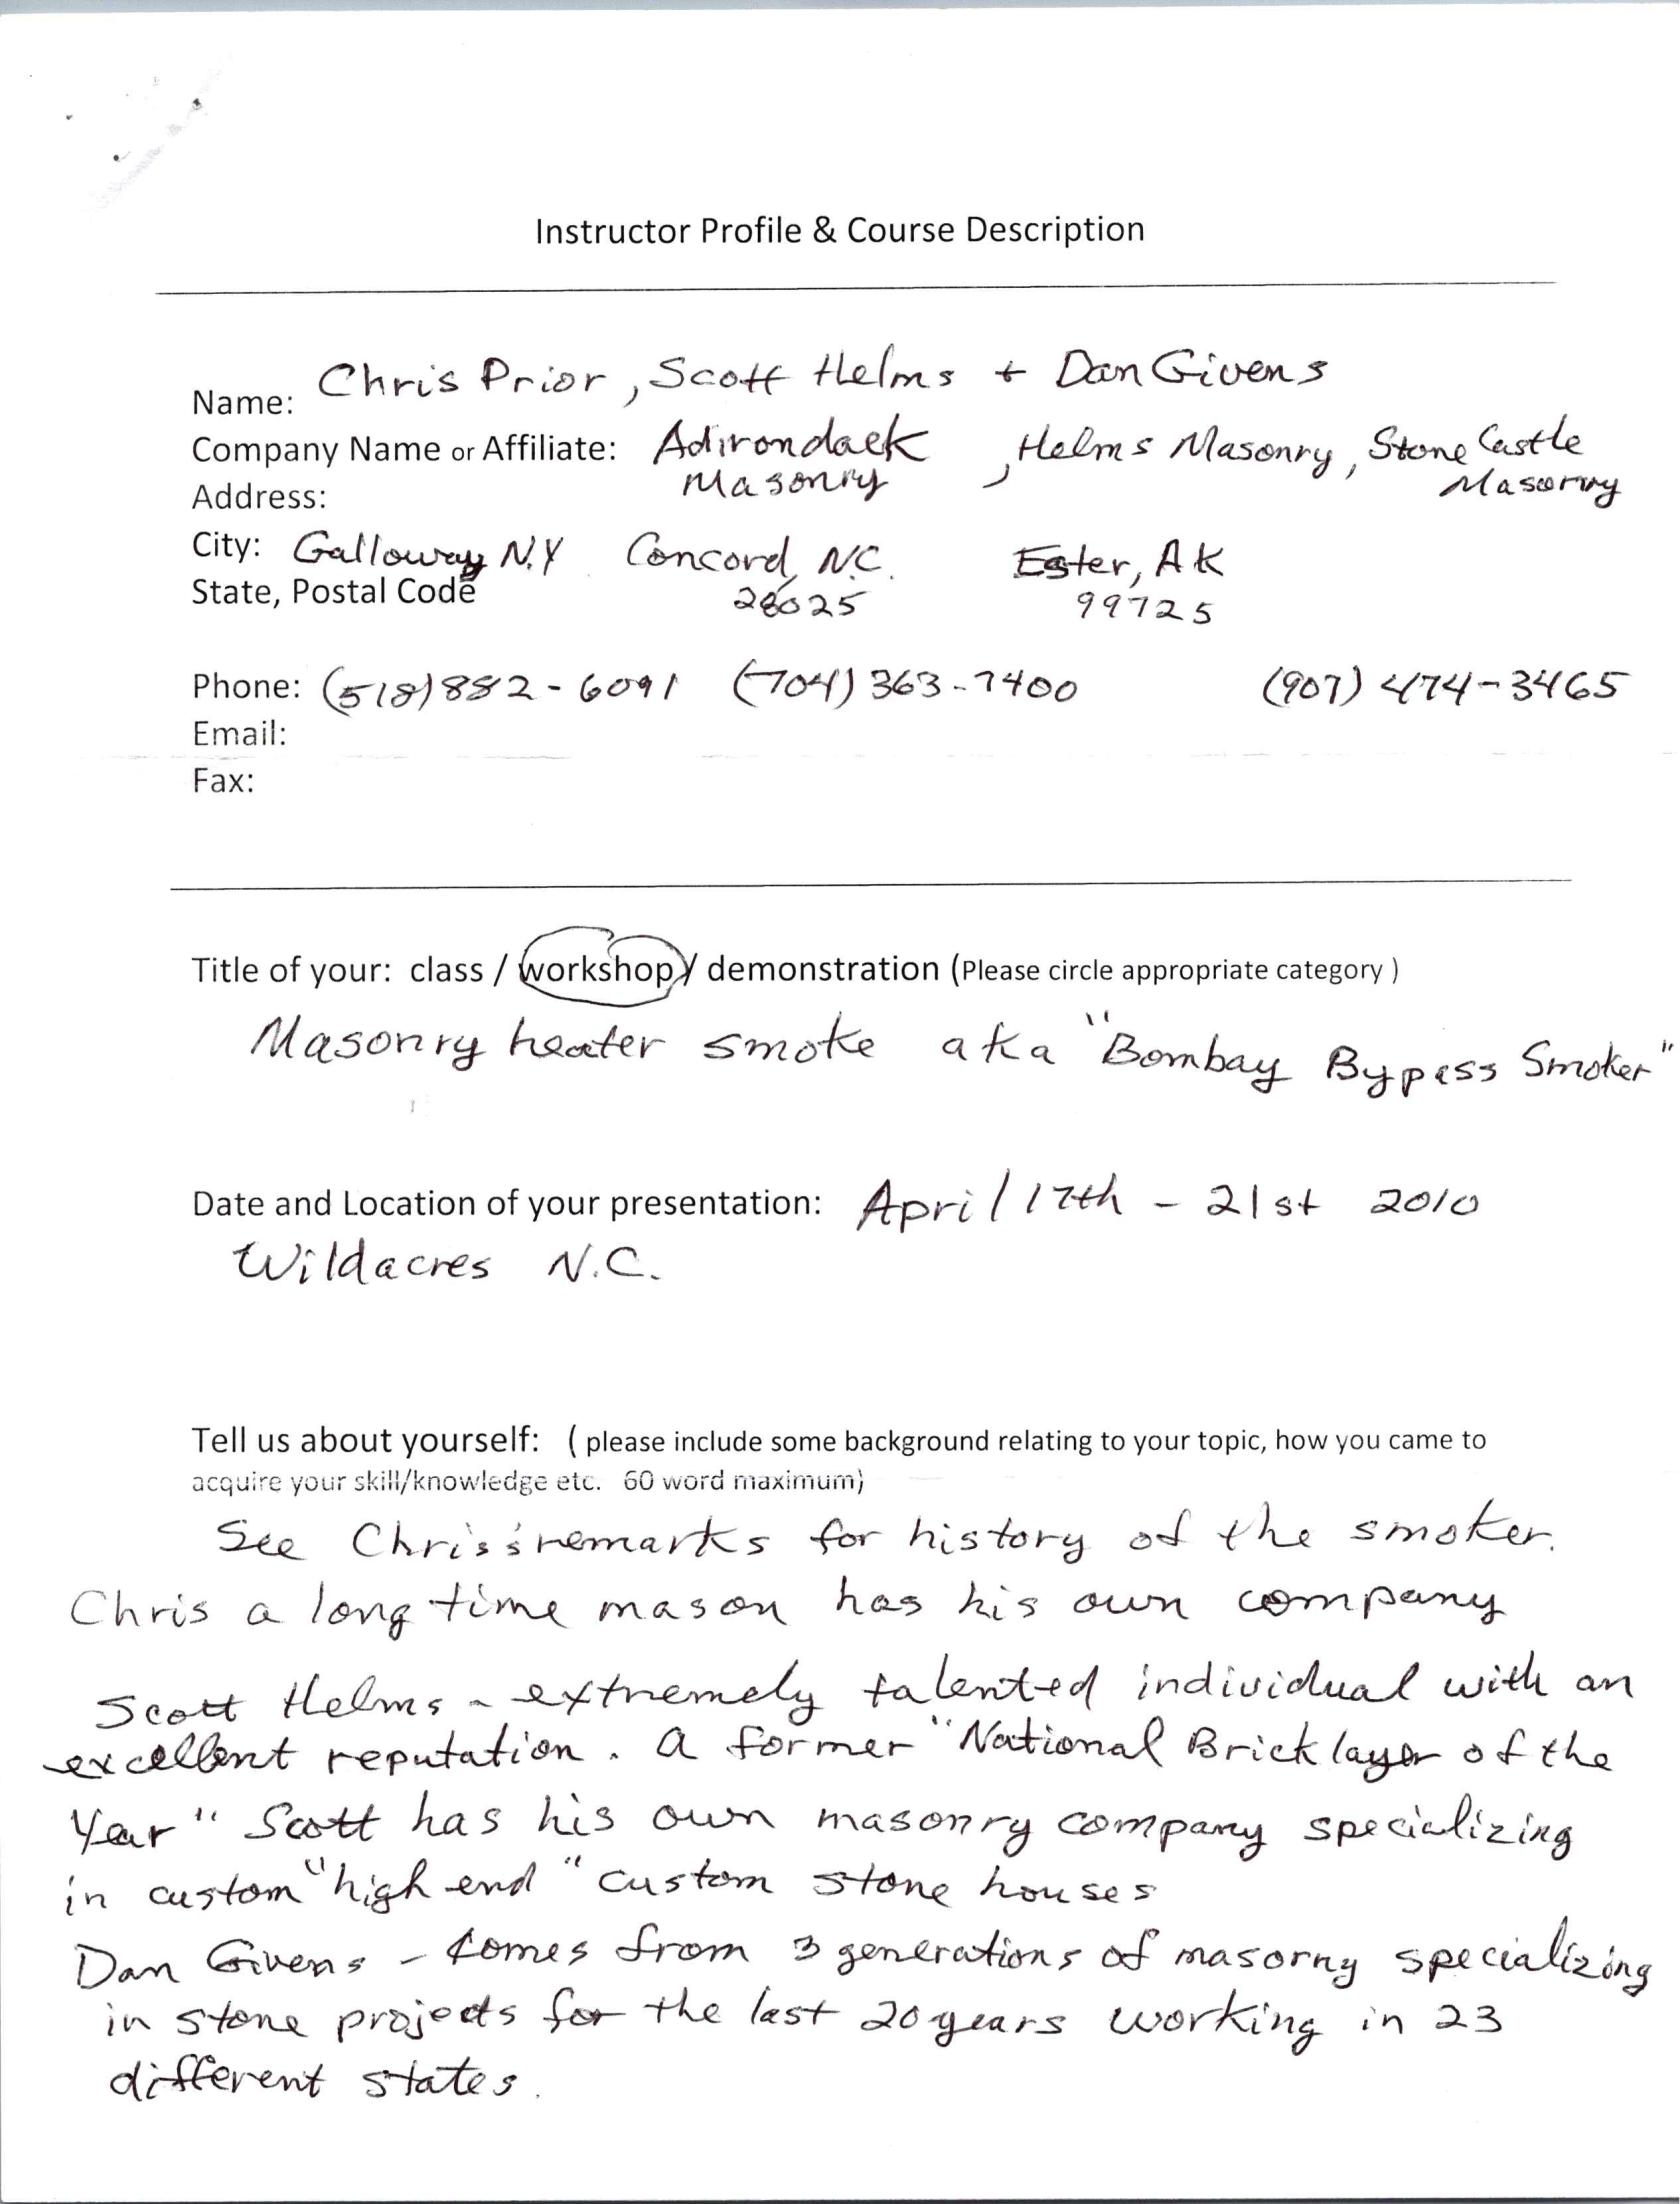 Instructor Profile & Course Description
Name: Chris Prior, Scott Helms + Dan Givens
Company Name or Affiliate: Adirondack Masonry, Helms Masonry, Stone Castle Masonry
Address:
City: Galloway N.Y Concord, N.C. Ester, AK
State, Postal Code 28025 99725
Phone: (518) 882-6091 (704) 363-7400 (907) 474-3465
Email:
Fax:
Title of your: class / workshop / demonstration (Please circle appropriate category )
Masonry heater smoke aka "Bombay Bypass Smoker"
Date and Location of your presentation: April 17th - 21st 2010
Wildacres N.C.
Tell us about yourself: ( please include some background relating to your topic, how you came to
acquire your skill/knowledge etc. 60 word maximum)
See Chris's remarks for history of the smoker.
Chris a long time mason has his own company
Scott Helms - extremely talented individual with an
excellent reputation. A former "National Bricklayer of the
Year" Scott has his own masonry company specializing
in custom "high end" custom stone houses
Dan Givens - comes from 3 generations of masonry specializing
in stone projects for the last 20 years working in 23
different states.